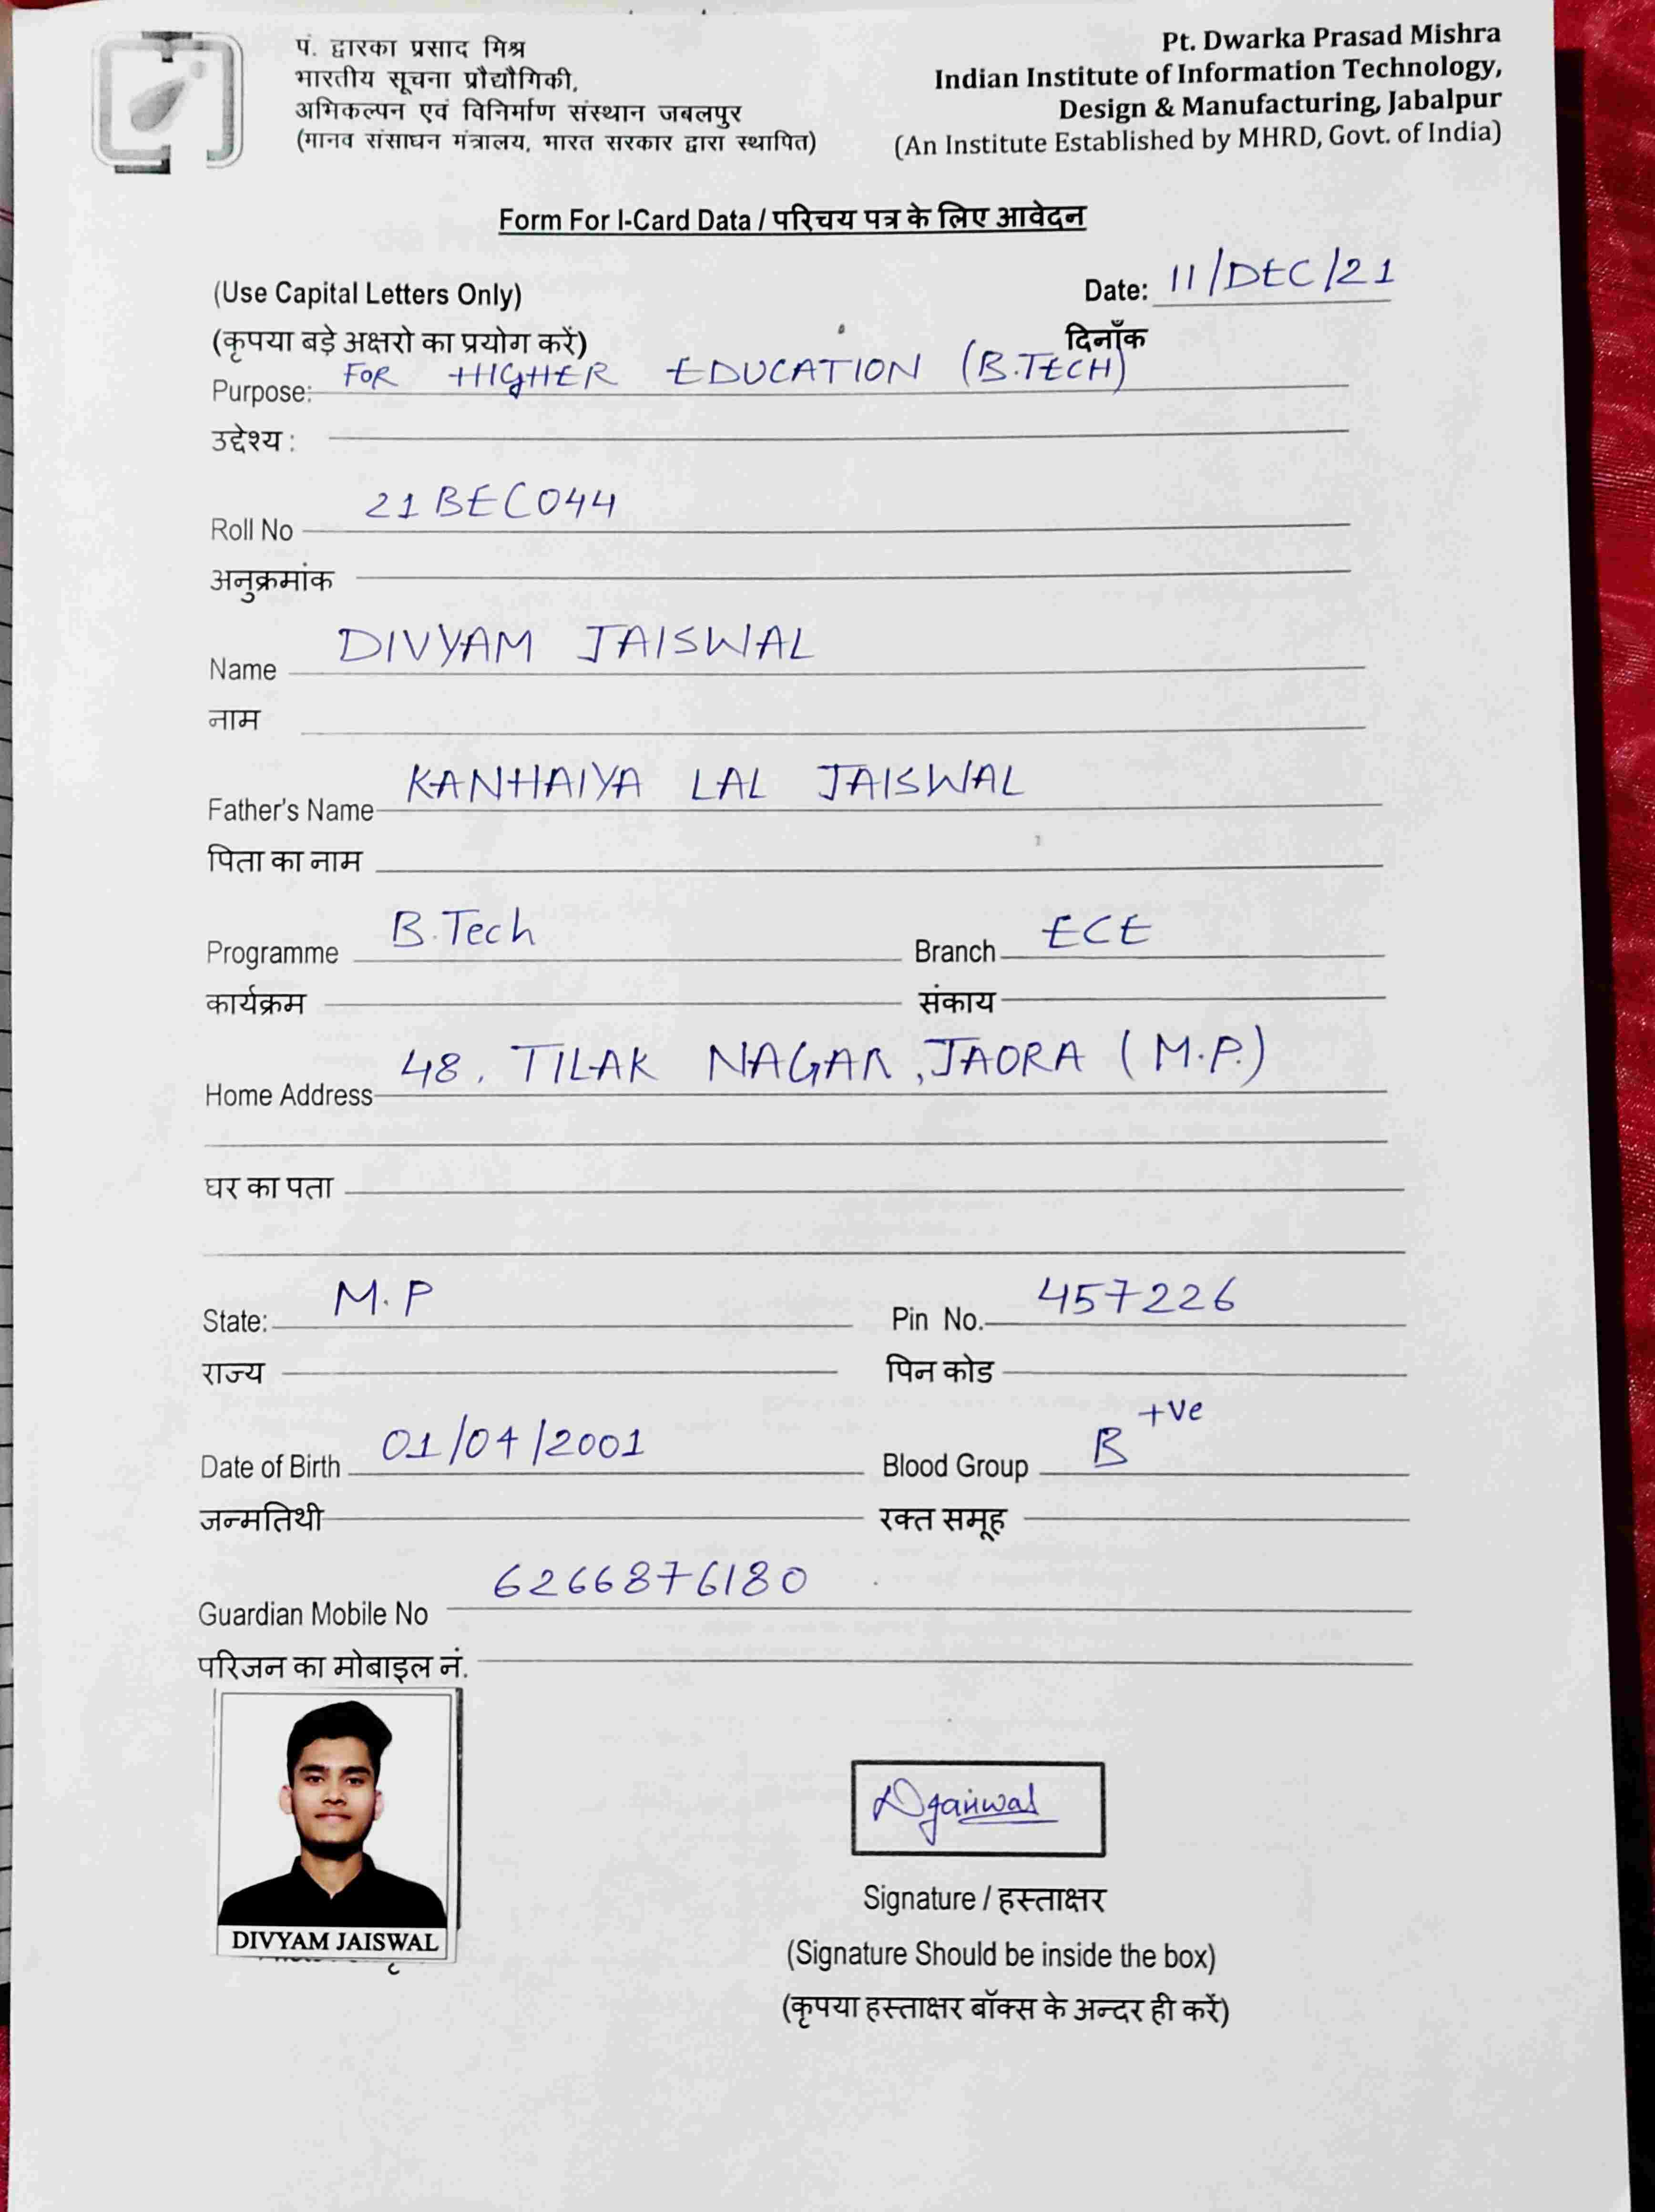 पं. द्वारका प्रसाद मिश्र
भारतीय सूचना प्रौद्यौगिकी,
अभिकल्पन एवं विनिर्माण संस्थान जबलपुर
(मानव संसाधन मंत्रालय, भारत सरकार द्वारा स्थापित)
Pt. Dwarka Prasad Mishra
Indian Institute of Information Technology,
Design & Manufacturing, Jabalpur
(An Institute Established by MHRD, Govt. of India)
Form For I-Card Data / परिचय पत्र के लिए आवेदन
(Use Capital Letters Only) Date: 11/DEC/21
(कृपया बड़े अक्षरो का प्रयोग करें) दिनाँक
Purpose: FOR HIGHER EDUCATION (B.TECH)
उद्देश्य :
Roll No 21BEC044
अनुक्रमांक
Name DIVYAM JAISWAL
नाम
Father's Name KANHAIYA LAL JAISWAL
पिता का नाम
Programme B.Tech Branch ECE
कार्यक्रम संकाय
Home Address 48, TILAK NAGAR, JAORA (M.P.)
घर का पता
State: M.P Pin No. 457226
राज्य पिन कोड
Date of Birth 01/04/2001 Blood Group B +ve
जन्मतिथी रक्त समूह
Guardian Mobile No 6266876180
परिजन का मोबाइल नं.
DIVYAM JAISWAL
Signature / हस्ताक्षर
(Signature Should be inside the box)
(कृपया हस्ताक्षर बॉक्स के अन्दर ही करें)